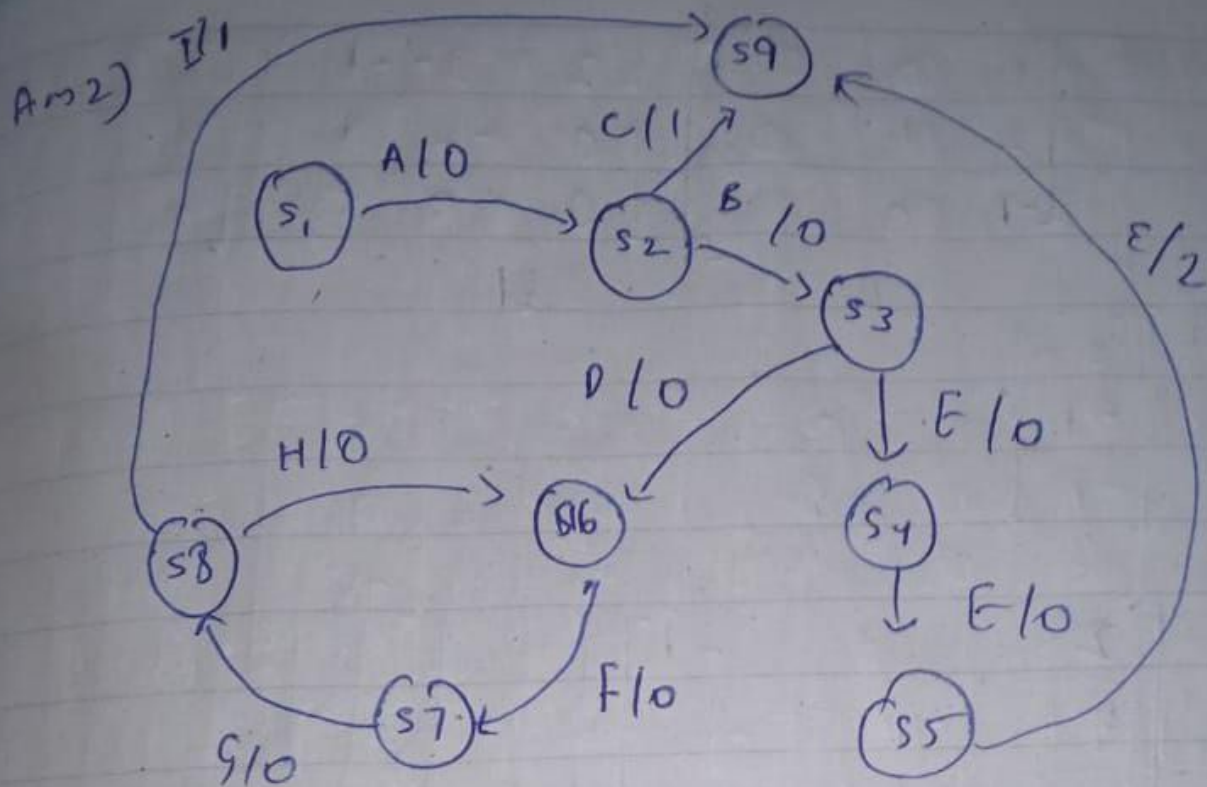 Ans2)
I/1
S9
C/1
A/0
S1
S2
B/0
S3
E/2
D/0
E/0
H/0
S6
S4
S8
E/0
F/0
S7
S5
G/0